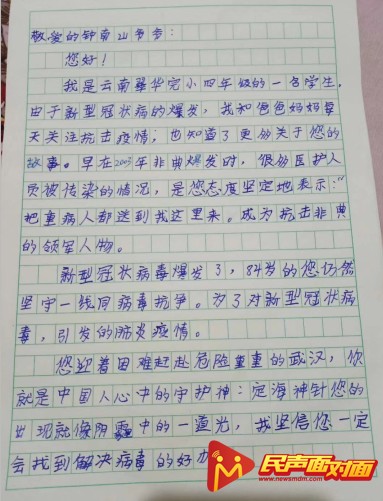 敬爱的钟南山爷爷：
您好！
我是云南翠华完小四年级的一名学生，
由于新型冠状病的爆发，我和爸爸妈妈每
天关注抗击疫情；也知道了更多关于您的
故事。早在2003年非典爆发时，很多医护人
员被传染的情况，是您态度坚定地表示：“
把重病人都送到我这里来。成为抗击非典
的领军人物。
新型冠状病毒爆发了，84岁的您仍然
坚守一线同病毒抗争。为了对新型冠状病
毒，引发的肺炎疫情。
您迎着困难赶赴危险重重的武汉，你
就是中国人心中的守护神：定海神针您的
出现就像阴霾中的一道光，我坚信您一定
会找到解决病毒的好
民声面对面
www.newsmdm.com